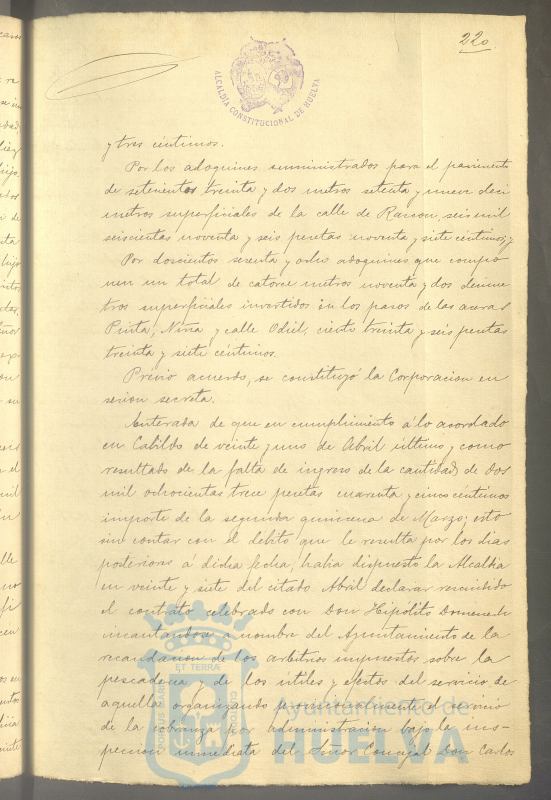 220.
ALCALDIA CONSTITUCIONAL DE HUELVA
y tres céntimos.
Por los adoquines suministrados para el pavimento
de setecientos treinta y dos metros setenta y nueve deci
metros superficiales de la calle de Rascon, seis mil
seiscientas noventa y seis pesetas noventa y siete céntimos; y
Por doscientos sesenta y ocho adoquines que compo
nen un total de catorce metros noventa y dos decime
tros superficiales invertidos en los pasos de las aceras
Pinta, Niña y calle Odiel, ciento treinta y seis pesetas
treinta y siete céntimos.
Previo acuerdo, se constituyó la Corporacion en
sesion secreta.
Enterada de que en cumplimiento á lo acordado
en Cabildo de veinte y uno de Abril último y como
resultado de la falta de ingreso de la cantidad de dos
mil ochocientas trece pesetas cuarenta y cinco céntimos
importe de la segunda quincena de Marzo; esto
sin contar con el débito que le resulta por los dias
posteriores á dicha fecha, habia dispuesto la Alcaldia
en veinte y siete del citado Abril declarar rescindido
el contrato celebrado con Don Hipólito Domenech
incautandose a nombre del Ayuntamiento de la
recaudacion de los arbitrios impuestos sobre la
pescaderia y de los útiles y efectos del servicio de
aquella organizando provisionalmente el servicio
de la cobranza por administracion bajo la ins-
peccion inmediata del Señor Concejal Don Carlos
PORTUS MARIS ET TERRAE CUSTODIA
Ayuntamiento de
HUELVA